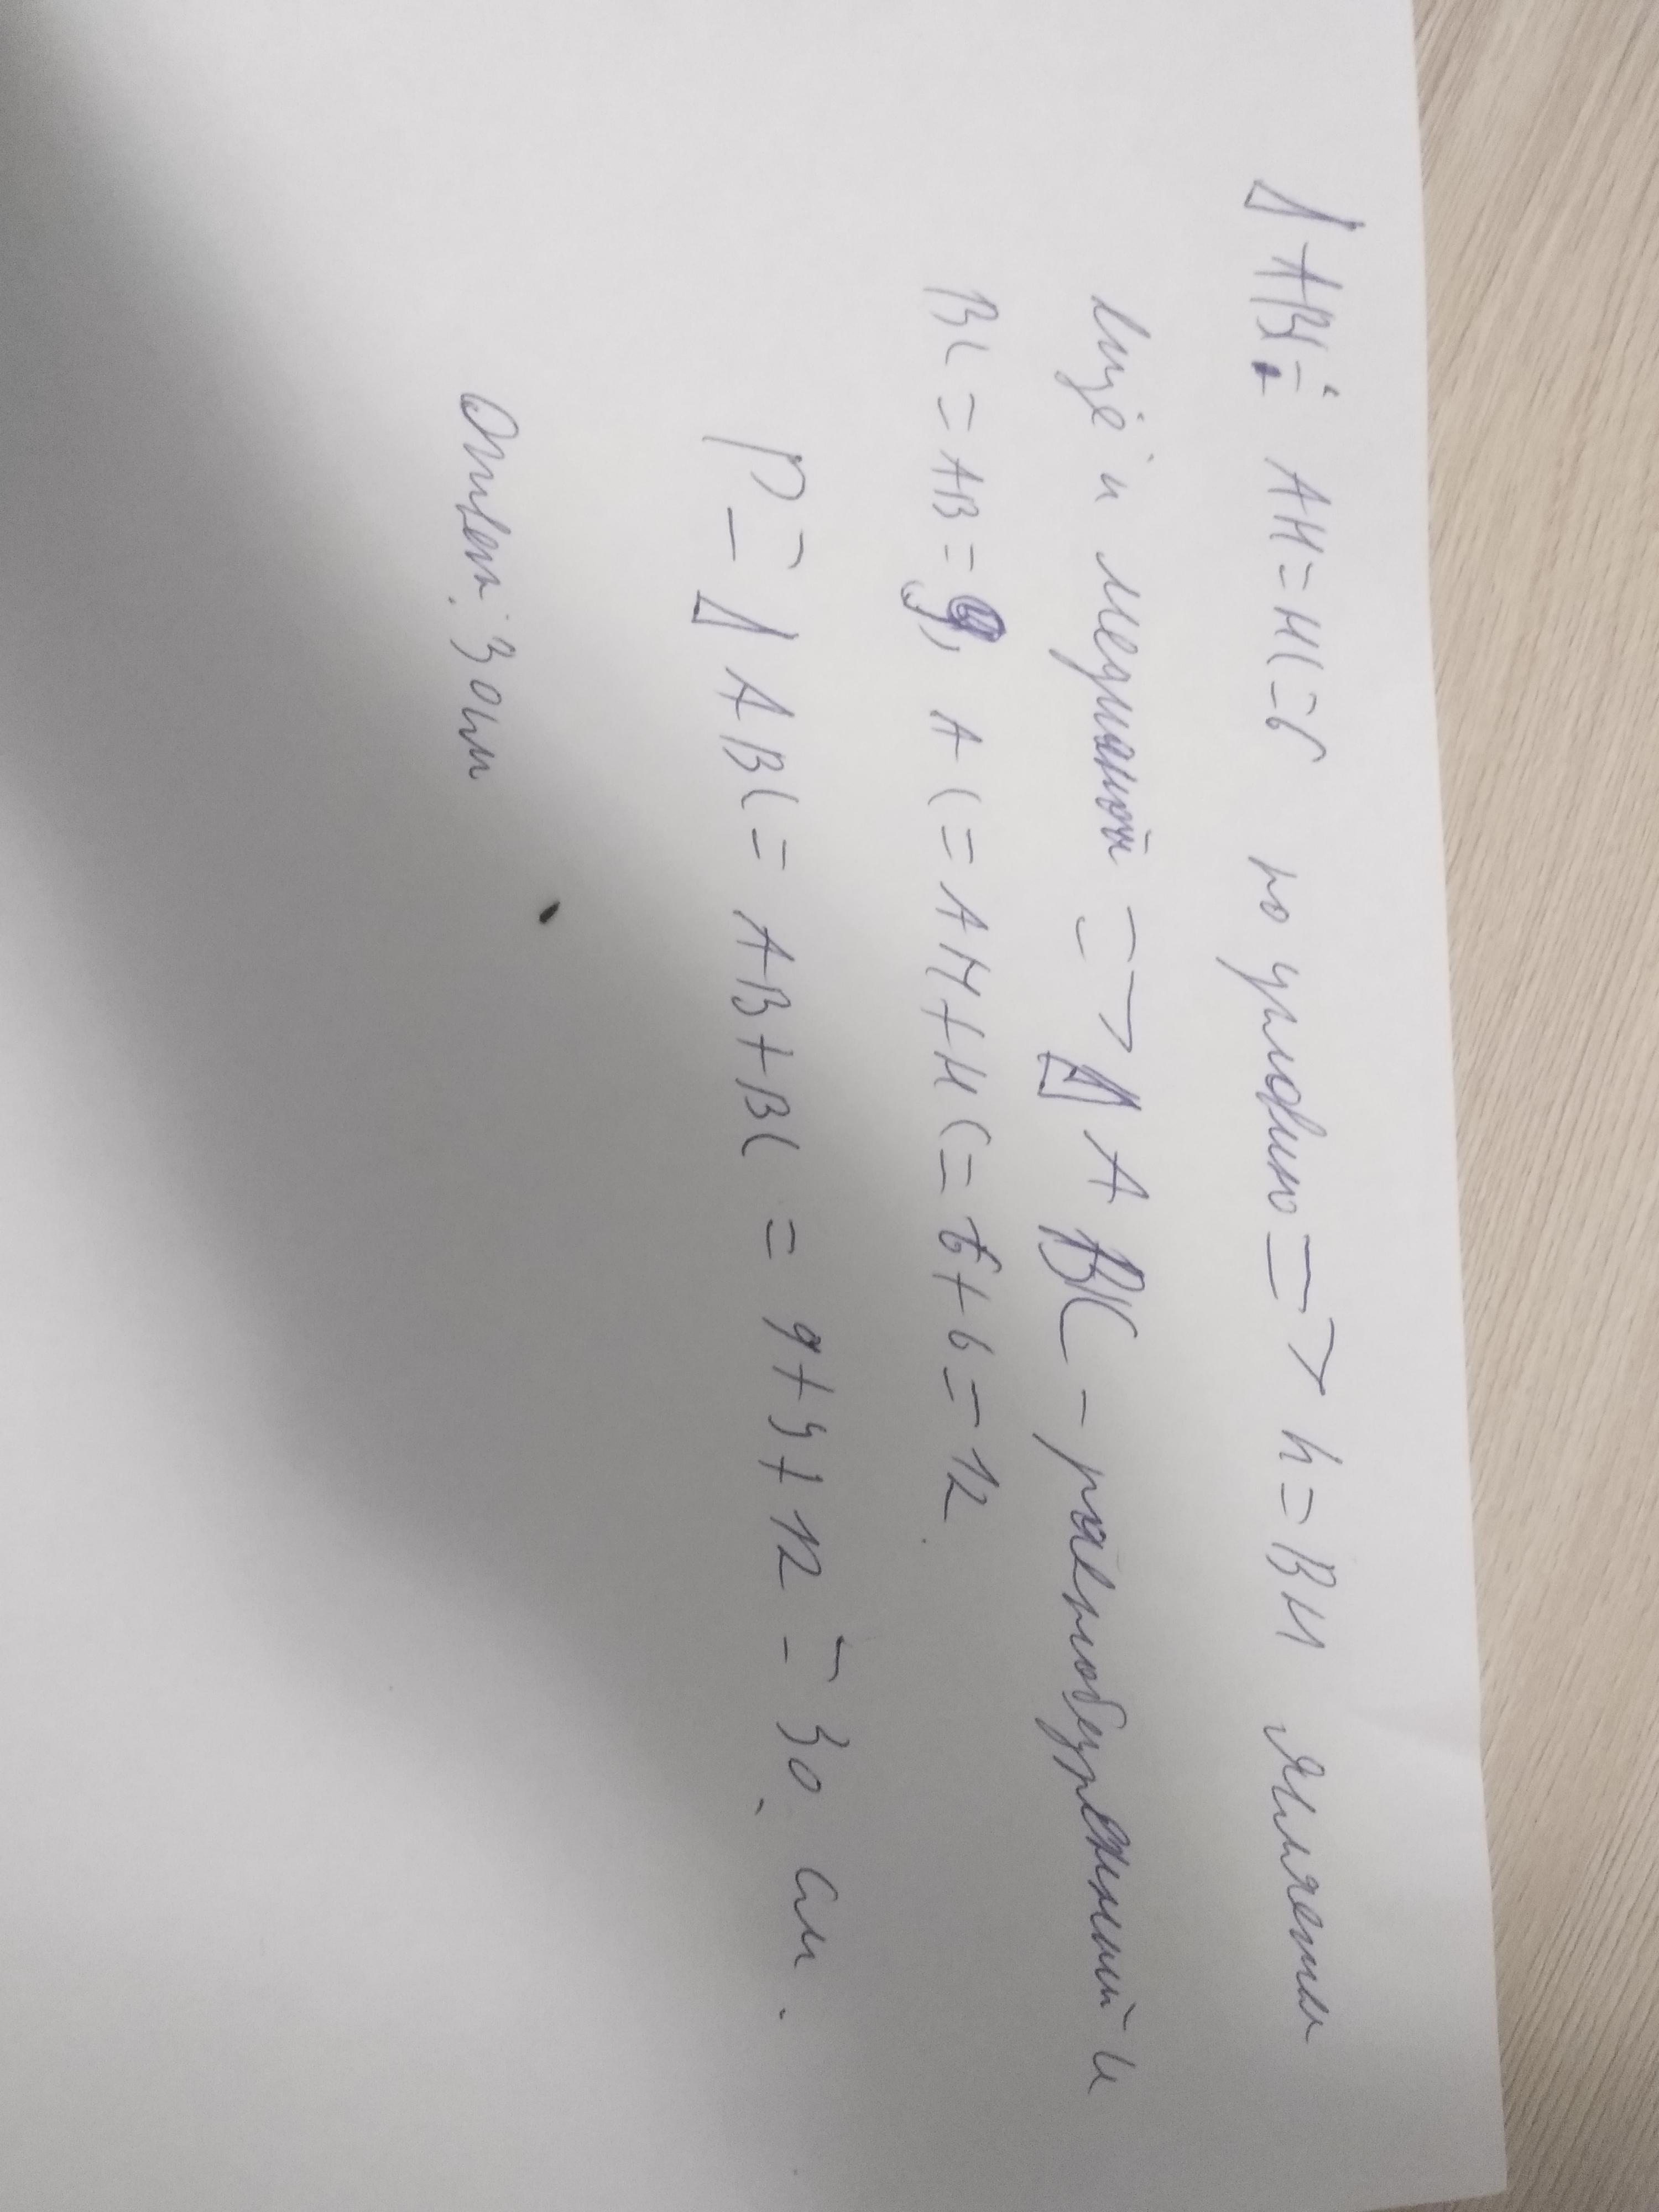 △ABC: AH=HC=6 по условию => h=BH является
ещё и медианой => △ABC - равнобедренный и
BC=AB=9, AC=AH+HC=6+6=12.
P=△ABC=AB+BC=9+9+12=30 см.
Ответ: 30см